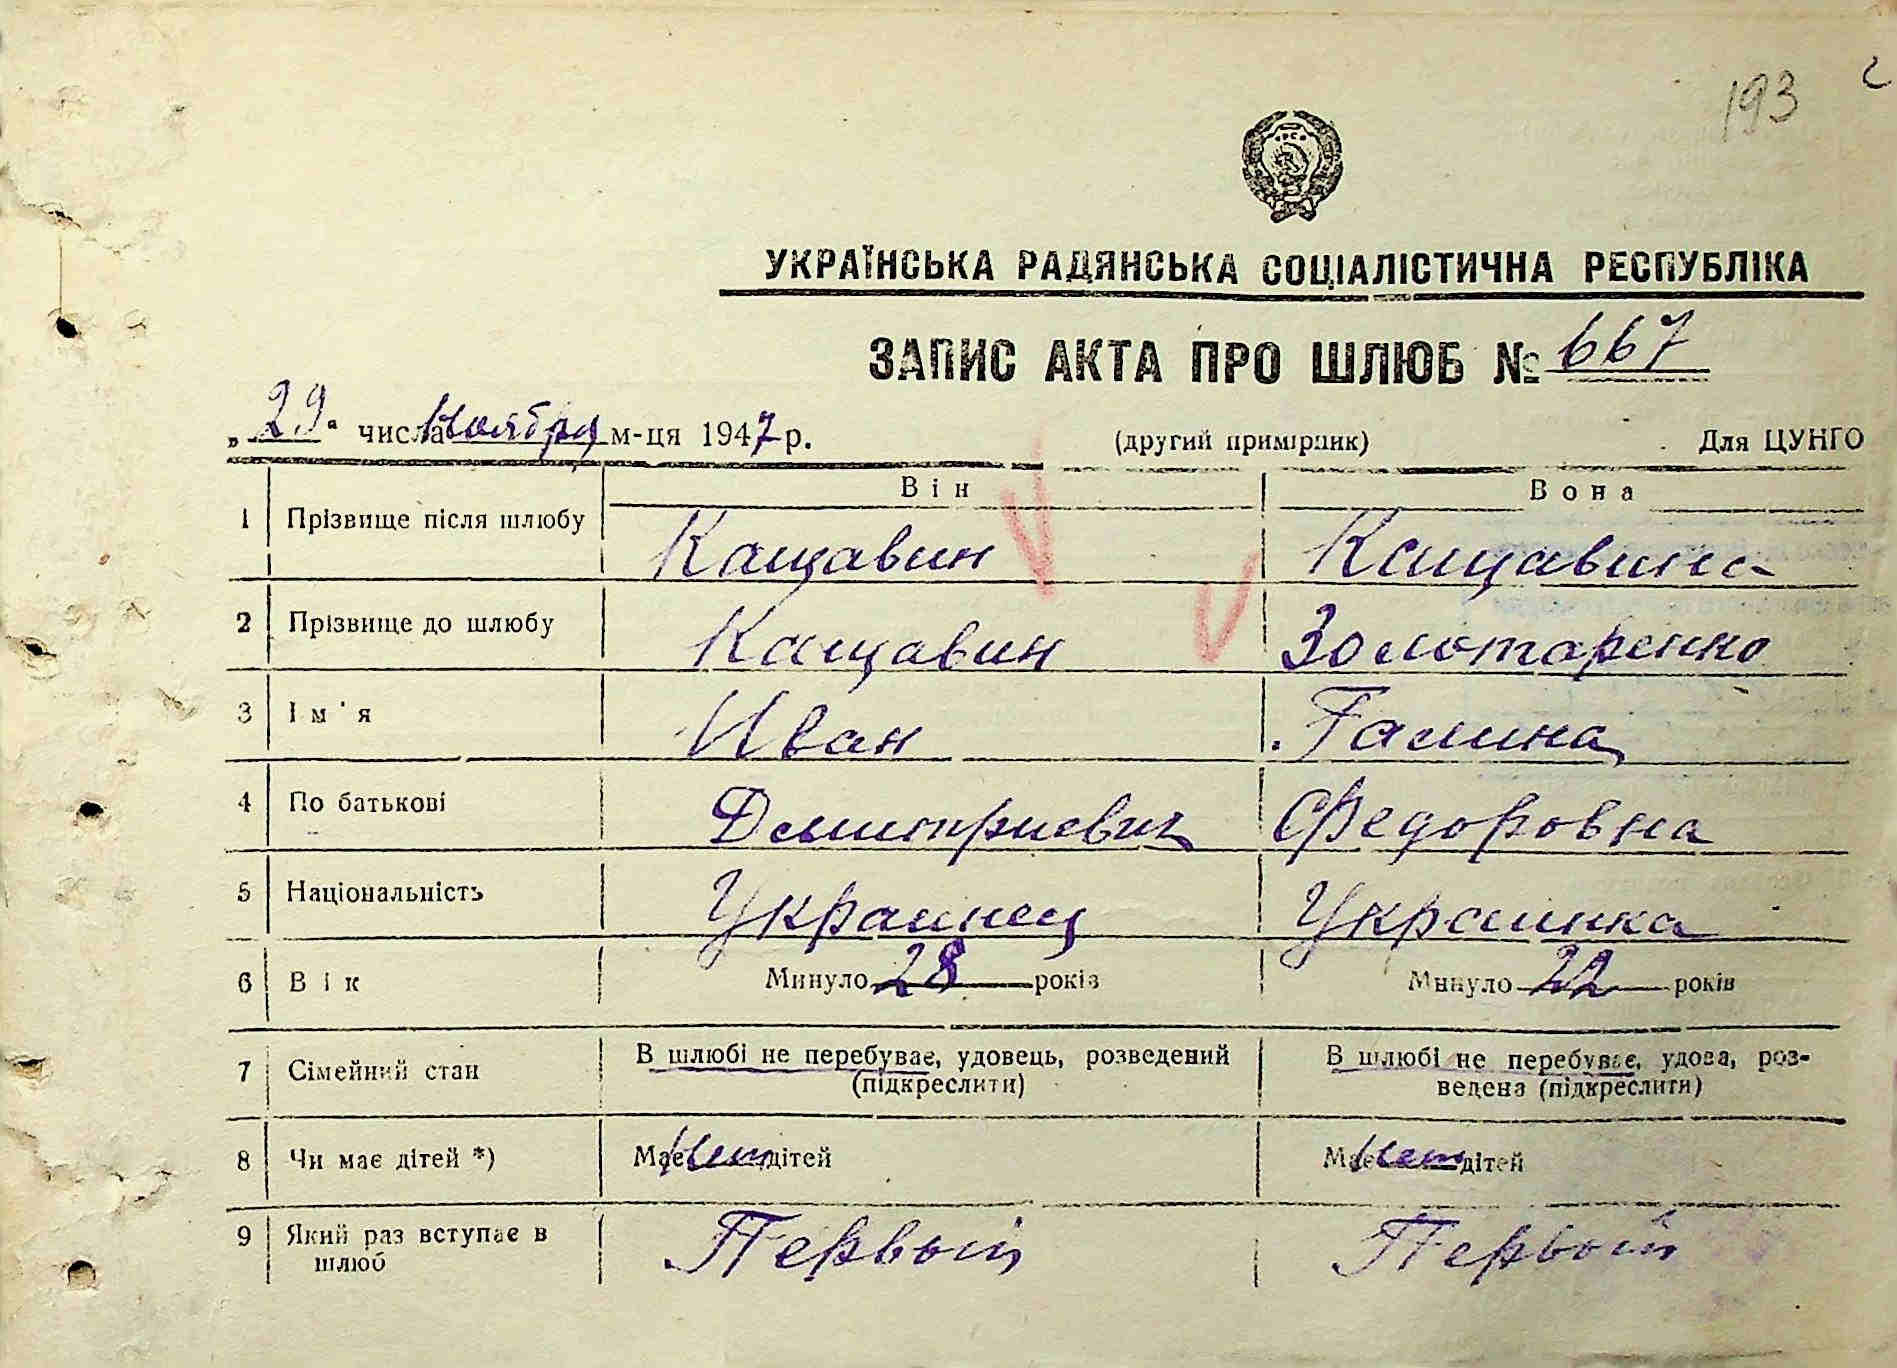 193
УКРАЇНСЬКА РАДЯНСЬКА СОЦІАЛІСТИЧНА РЕСПУБЛІКА
ЗАПИС АКТА ПРО ШЛЮБ № 667
„29“ числа Ноября м-ця 1947 р. (другий примірник) Для ЦУНГО
Він Вона
1 Прізвище після шлюбу Кащавин Кащавина
2 Прізвище до шлюбу Кащавин Золотаренко
3 Ім'я Иван Галина
4 По батькові Демитриевич Федоровна
5 Національність Украинец Украинка
6 Вік Минуло 28 років Минуло 22 років
7 Сімейний стан В шлюбі не перебуває, удовець, розведений В шлюбі не перебуває, удова, роз-
(підкреслити) ведена (підкреслити)
8 Чи має дітей *) Має нет дітей Має нет дітей
9 Який раз вступає в Первый Первый
шлюб